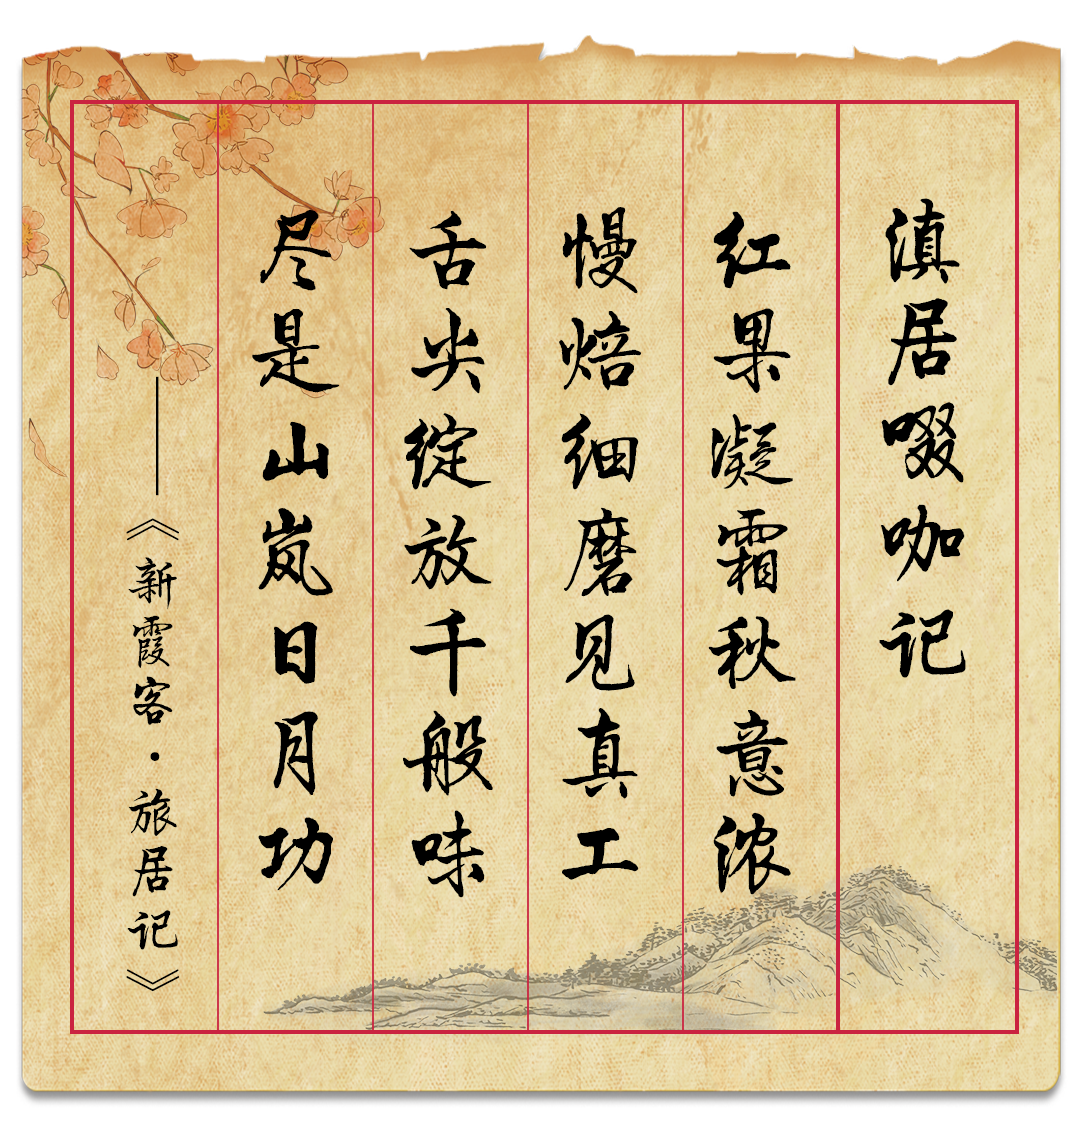 滇居啜咖记
红果凝霜秋意浓
慢焙细磨见真工
舌尖绽放千般味
尽是山岚日月功
——《新霞客·旅居记》